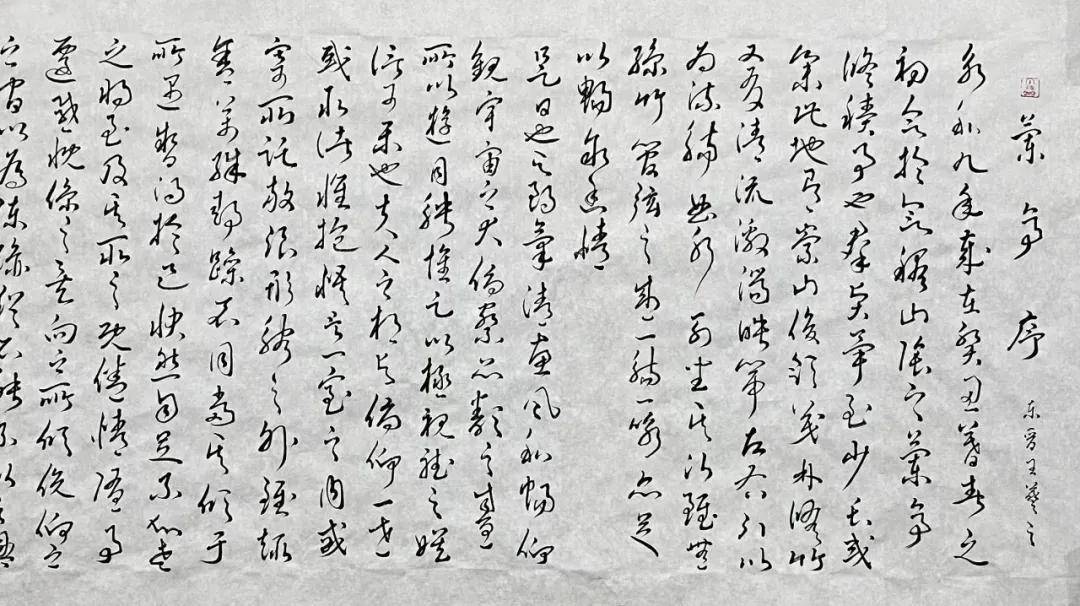 蘭亭序
东晋王羲之
永和九年歲在癸丑暮春之
初會於會稽山陰之蘭亭
修禊事也群賢畢至少長咸
集此地有崇山峻領茂林修竹
又有清流激湍映帶左右引以
為流觴曲水列坐其次雖無
絲竹管弦之盛一觴一詠亦足
以暢敘幽情
是日也天朗氣清惠風和暢仰
觀宇宙之大俯察品類之盛
所以遊目騁懷足以極視聽之娛
信可樂也夫人之相與俯仰一世
或取諸懷抱悟言一室之內或
寄所託放浪形骸之外雖趣
舍萬殊靜躁不同當其欣于
所遇暫得於己快然自足不知老
之將至及其所之既倦情隨事
遷感慨係之矣向之所欣俛仰之
間以為陳跡猶不能不以之興